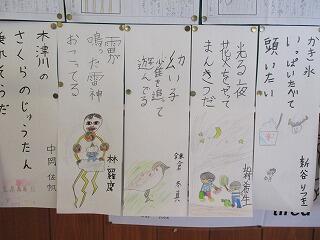 かき氷
いっぱいたべて
頭いたい
新谷りつき
光る夜
花火をやって
まんきつだ
幼い子
雀を追って
遊んでる
鎌倉
雷が
鳴った雷神
おこってる
林
木津川の
さくらのじゅうたん
乗れそうだ
中岡佐帆